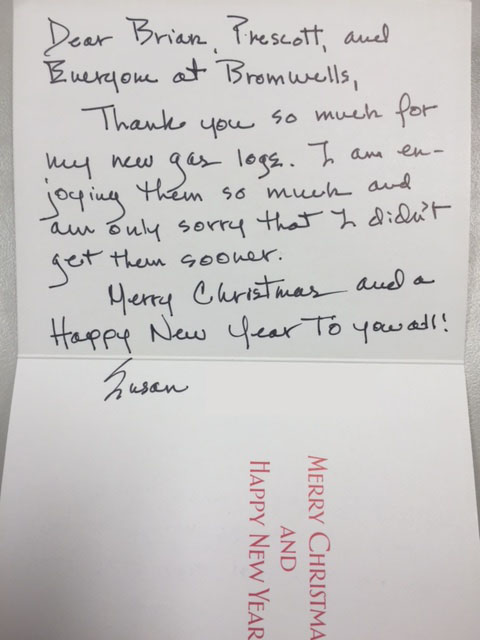 Dear Brian, Prescott, and
Everyone at Bromwells,
Thank you so much for
my new gas logs. I am en-
joying them so much and
am only sorry that I didn't
get them sooner.
Merry Christmas and a
Happy New Year To you all!
Susan
MERRY CHRISTMA
AND
HAPPY NEW YEAR